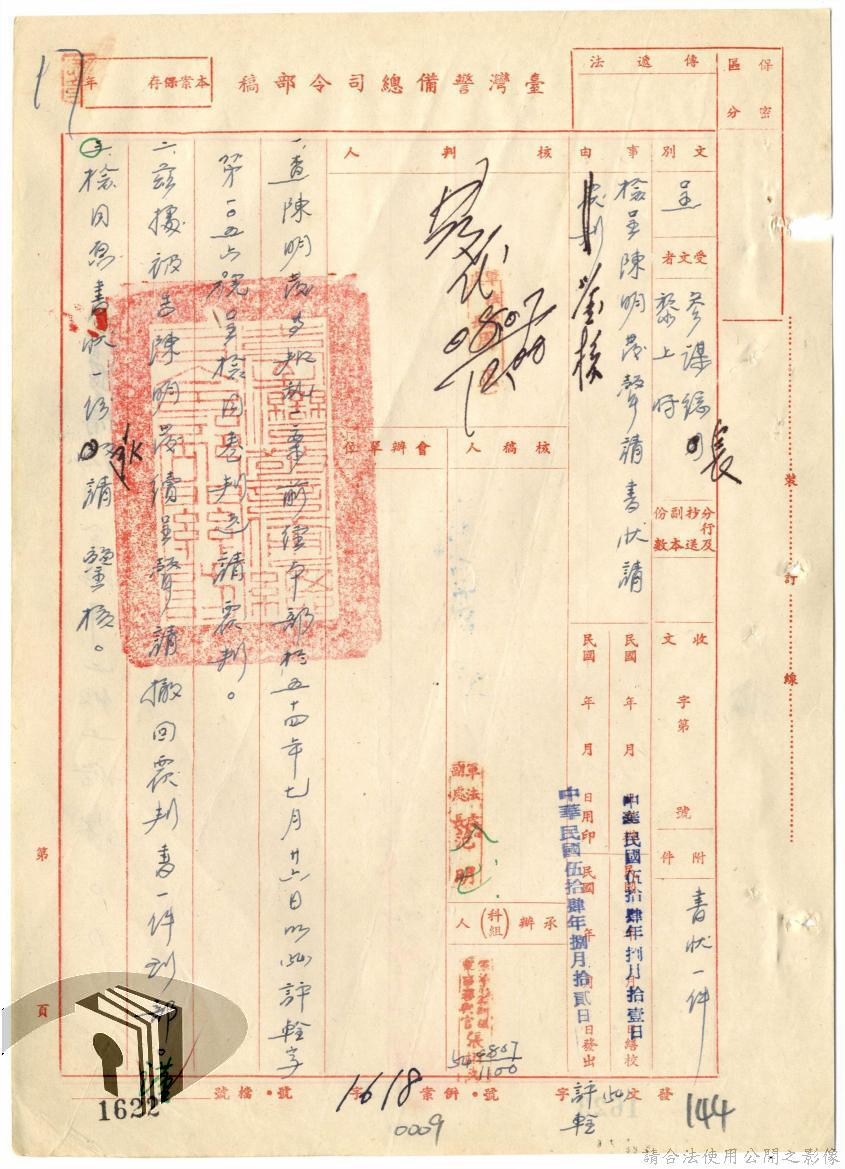 臺灣警備總司令部稿
本案保存 年
保密區分
傳遞法
文別
呈
受文者
參謀總長
黎上將
分行及抄送副本份數
收文 字第 號
附件
書狀一件
事由
檢呈陳明茂聲請書狀請
鑒核
核判人
核稿人
會辦單位
承辦(科組)人
民國 年 月 日繕校
中華民國伍拾肆年捌月拾壹日
民國 年 月 日用印
民國 年 月 日發出
中華民國伍拾肆年捌月拾貳日
一、查陳明茂等叛亂一案前經本部於五十四年七月廿六日以
第一〇五六號呈檢同卷判送請覆判。
二、茲據被告陳明茂續呈聲請撤回覆判書一件到部。謹
三、檢同原書狀一份
請鑒核。
裝 訂 線
第 頁
發文 字 號
併案 字 號
檔號
1618
0009
1622
144
17
0807
1100
請合法使用公開之影像